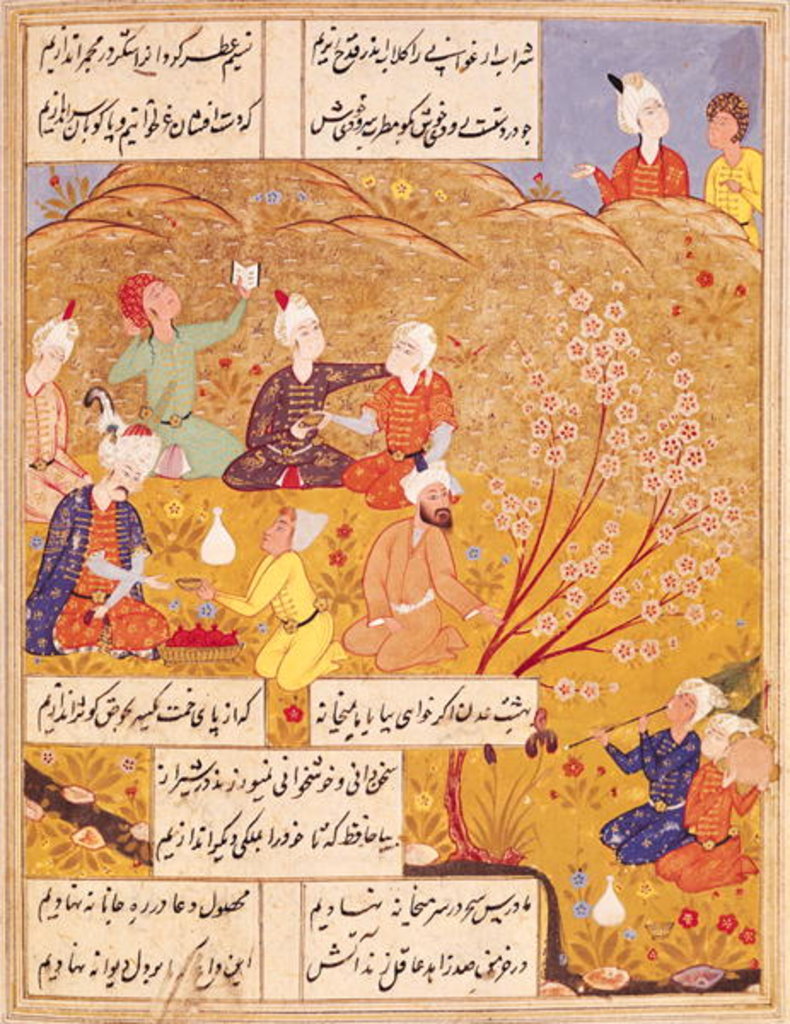 شراب ارغوانی را کلاب اندر قدح ریزیم نسیم عطر کردانرا شکر در مجمر اندازیم
چو در دستست رودی خوش بکو مطرب سرودی خوش که دست افشان غزل خوانیم و پاکوبان سر اندازیم
بهشت عدن اکر خواهی بیا با ما بمیخانه که از پای خمت یکسر بحوض کوثر اندازیم
سخن دانی و خوشخوانی نمیورزند در شیراز
بیا حافظ که تا خود را بملکی دیکر اندازیم
ما درس سحر در سر میخانه نهادیم محصول دعا در ره جانانه نهادیم
در خرمن صد زاهد عاقل زند آتش این داغ که ما بر دل دیوانه نهادیم